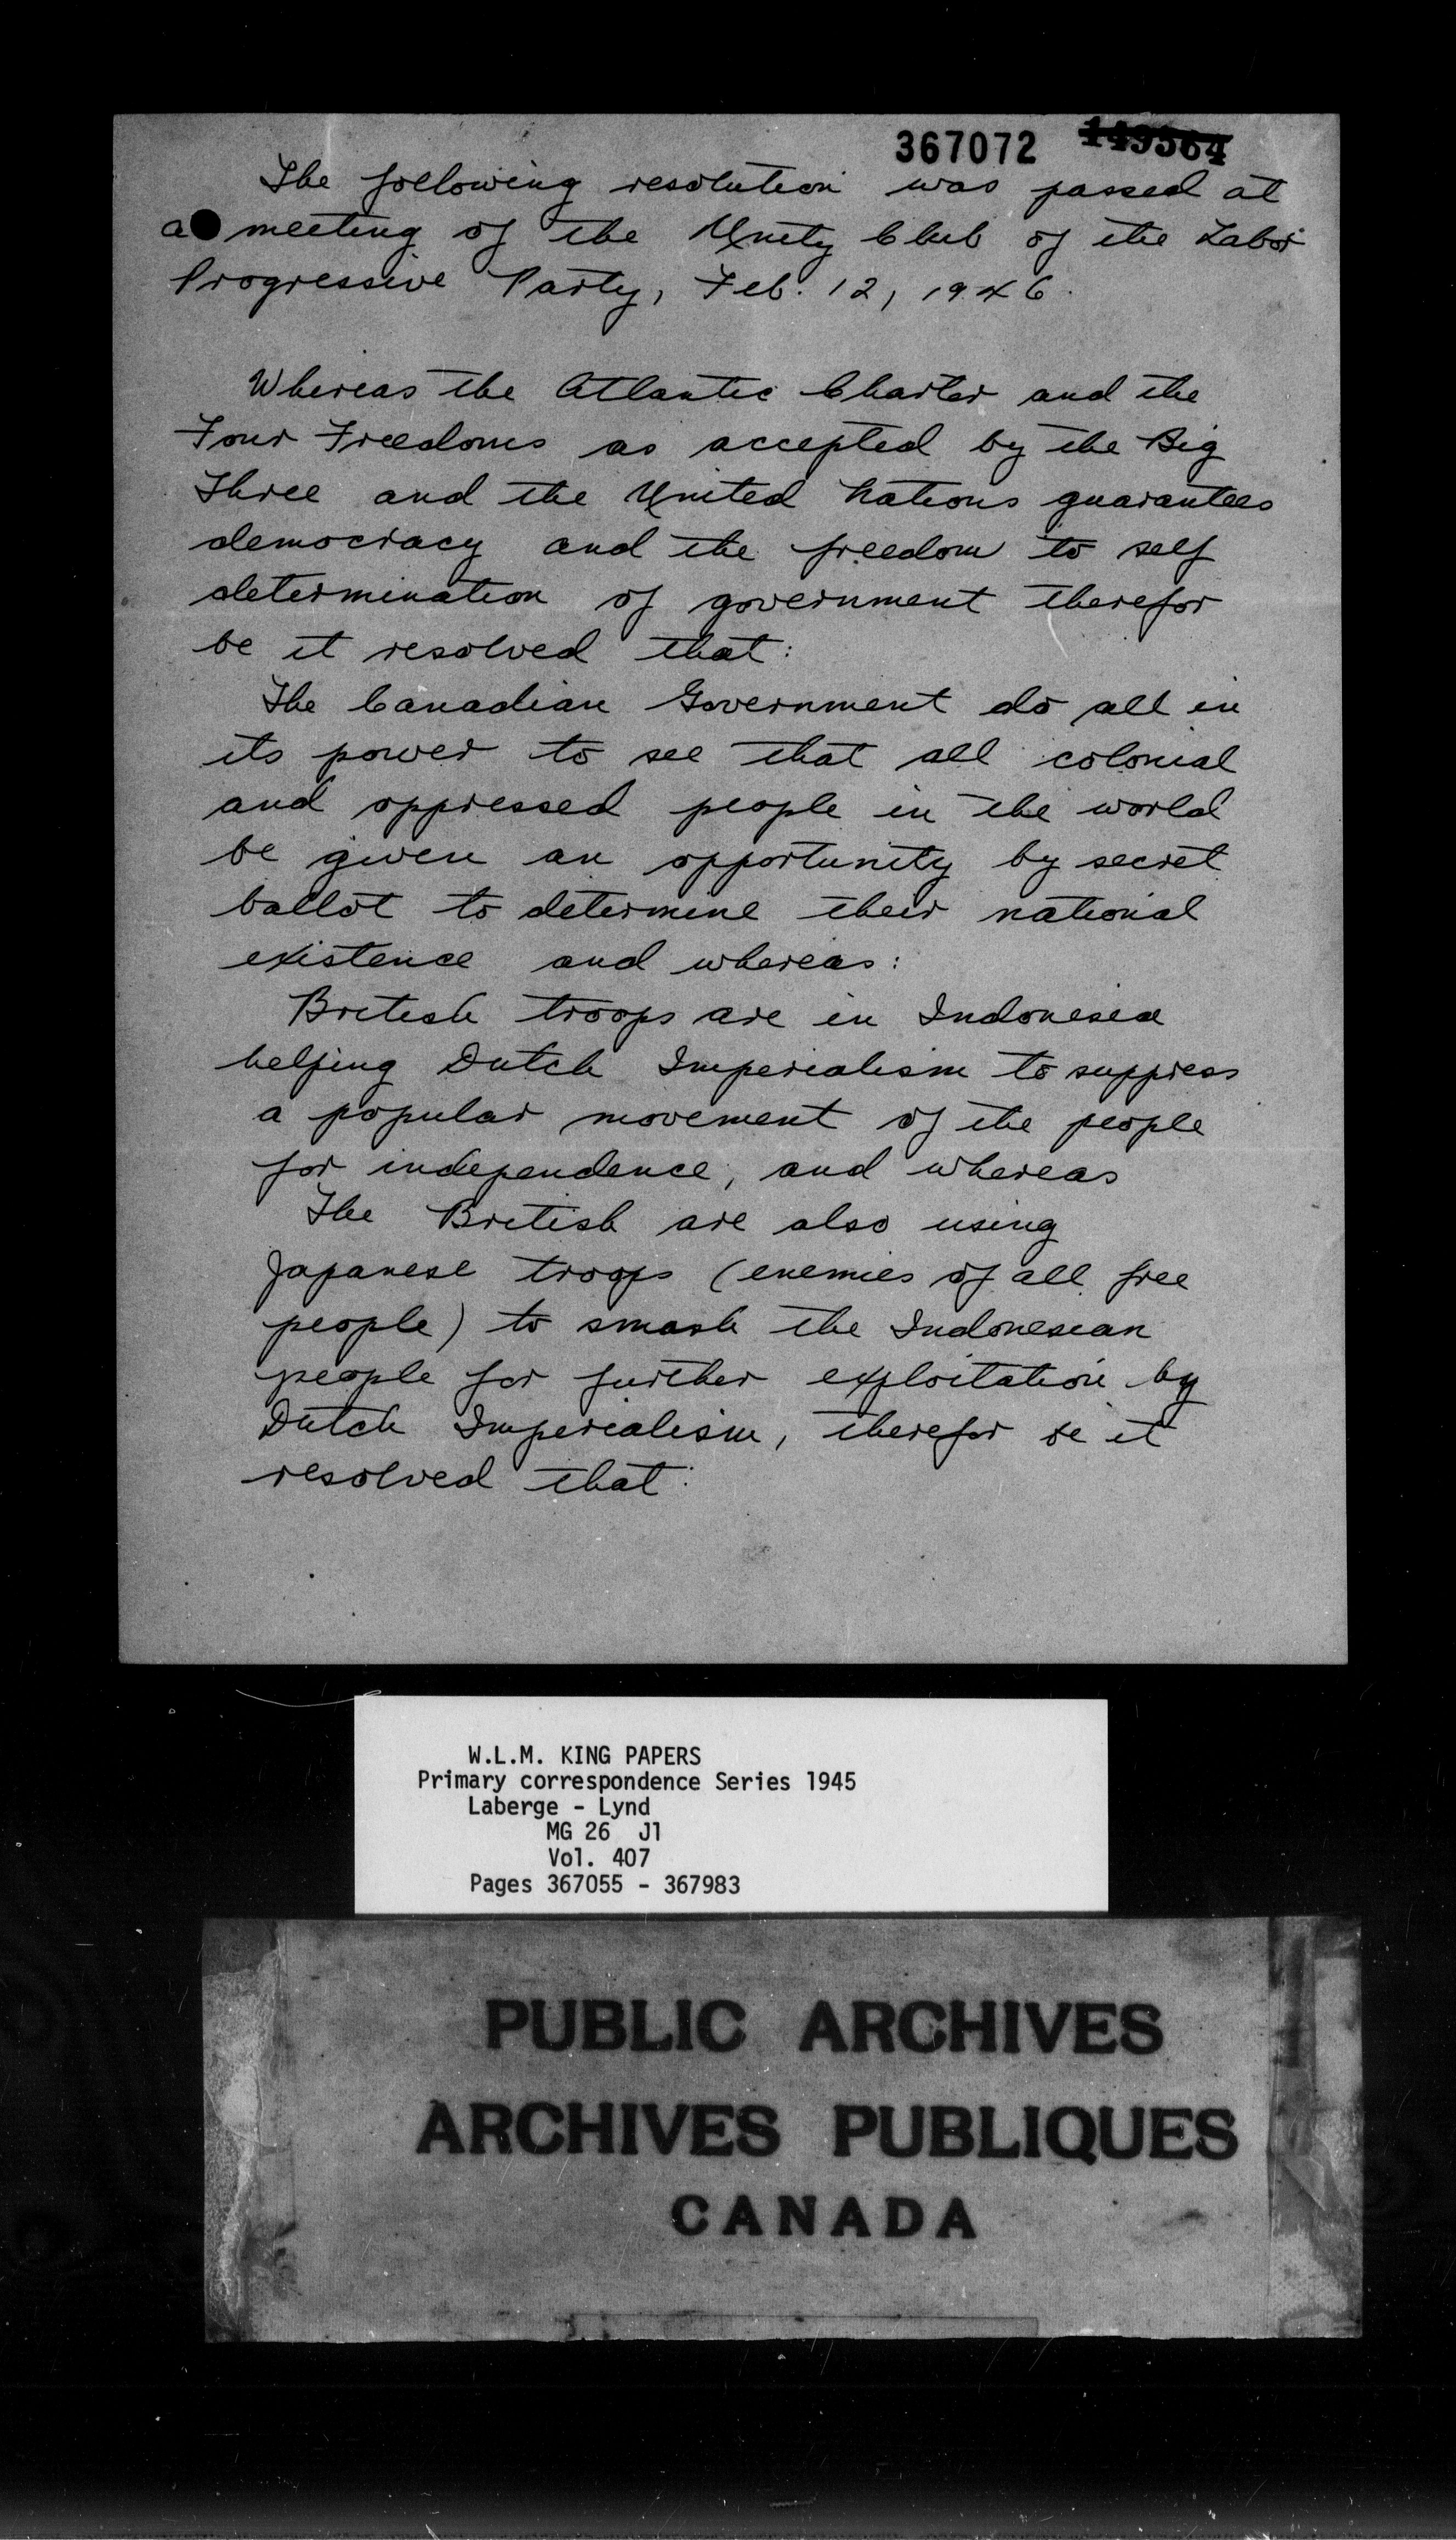 367072 149564
The following resolution was passed at
a meeting of the Unity Club of the Labor
Progressive Party, Feb. 12, 1946.
Whereas the Atlantic Charter and the
Four Freedoms as accepted by the Big
Three and the United Nations guarantees
democracy and the freedom to self
determination of government therefor
be it resolved that:
The Canadian Government do all in
its power to see that all colonial
and oppressed people in the world
be given an opportunity by secret
ballot to determine their national
existence and whereas:
British troops are in Indonesia
helping Dutch Imperialism to suppress
a popular movement of the people
for independence, and whereas
The British are also using
Japanese troops (enemies of all free
people) to smash the Indonesian
people for further exploitation by
Dutch Imperialism, therefor be it
resolved that:
W.L.M. KING PAPERS
Primary correspondence Series 1945
Laberge - Lynd
MG 26 J1
Vol. 407
Pages 367055 - 367983
PUBLIC ARCHIVES
ARCHIVES PUBLIQUES
CANADA